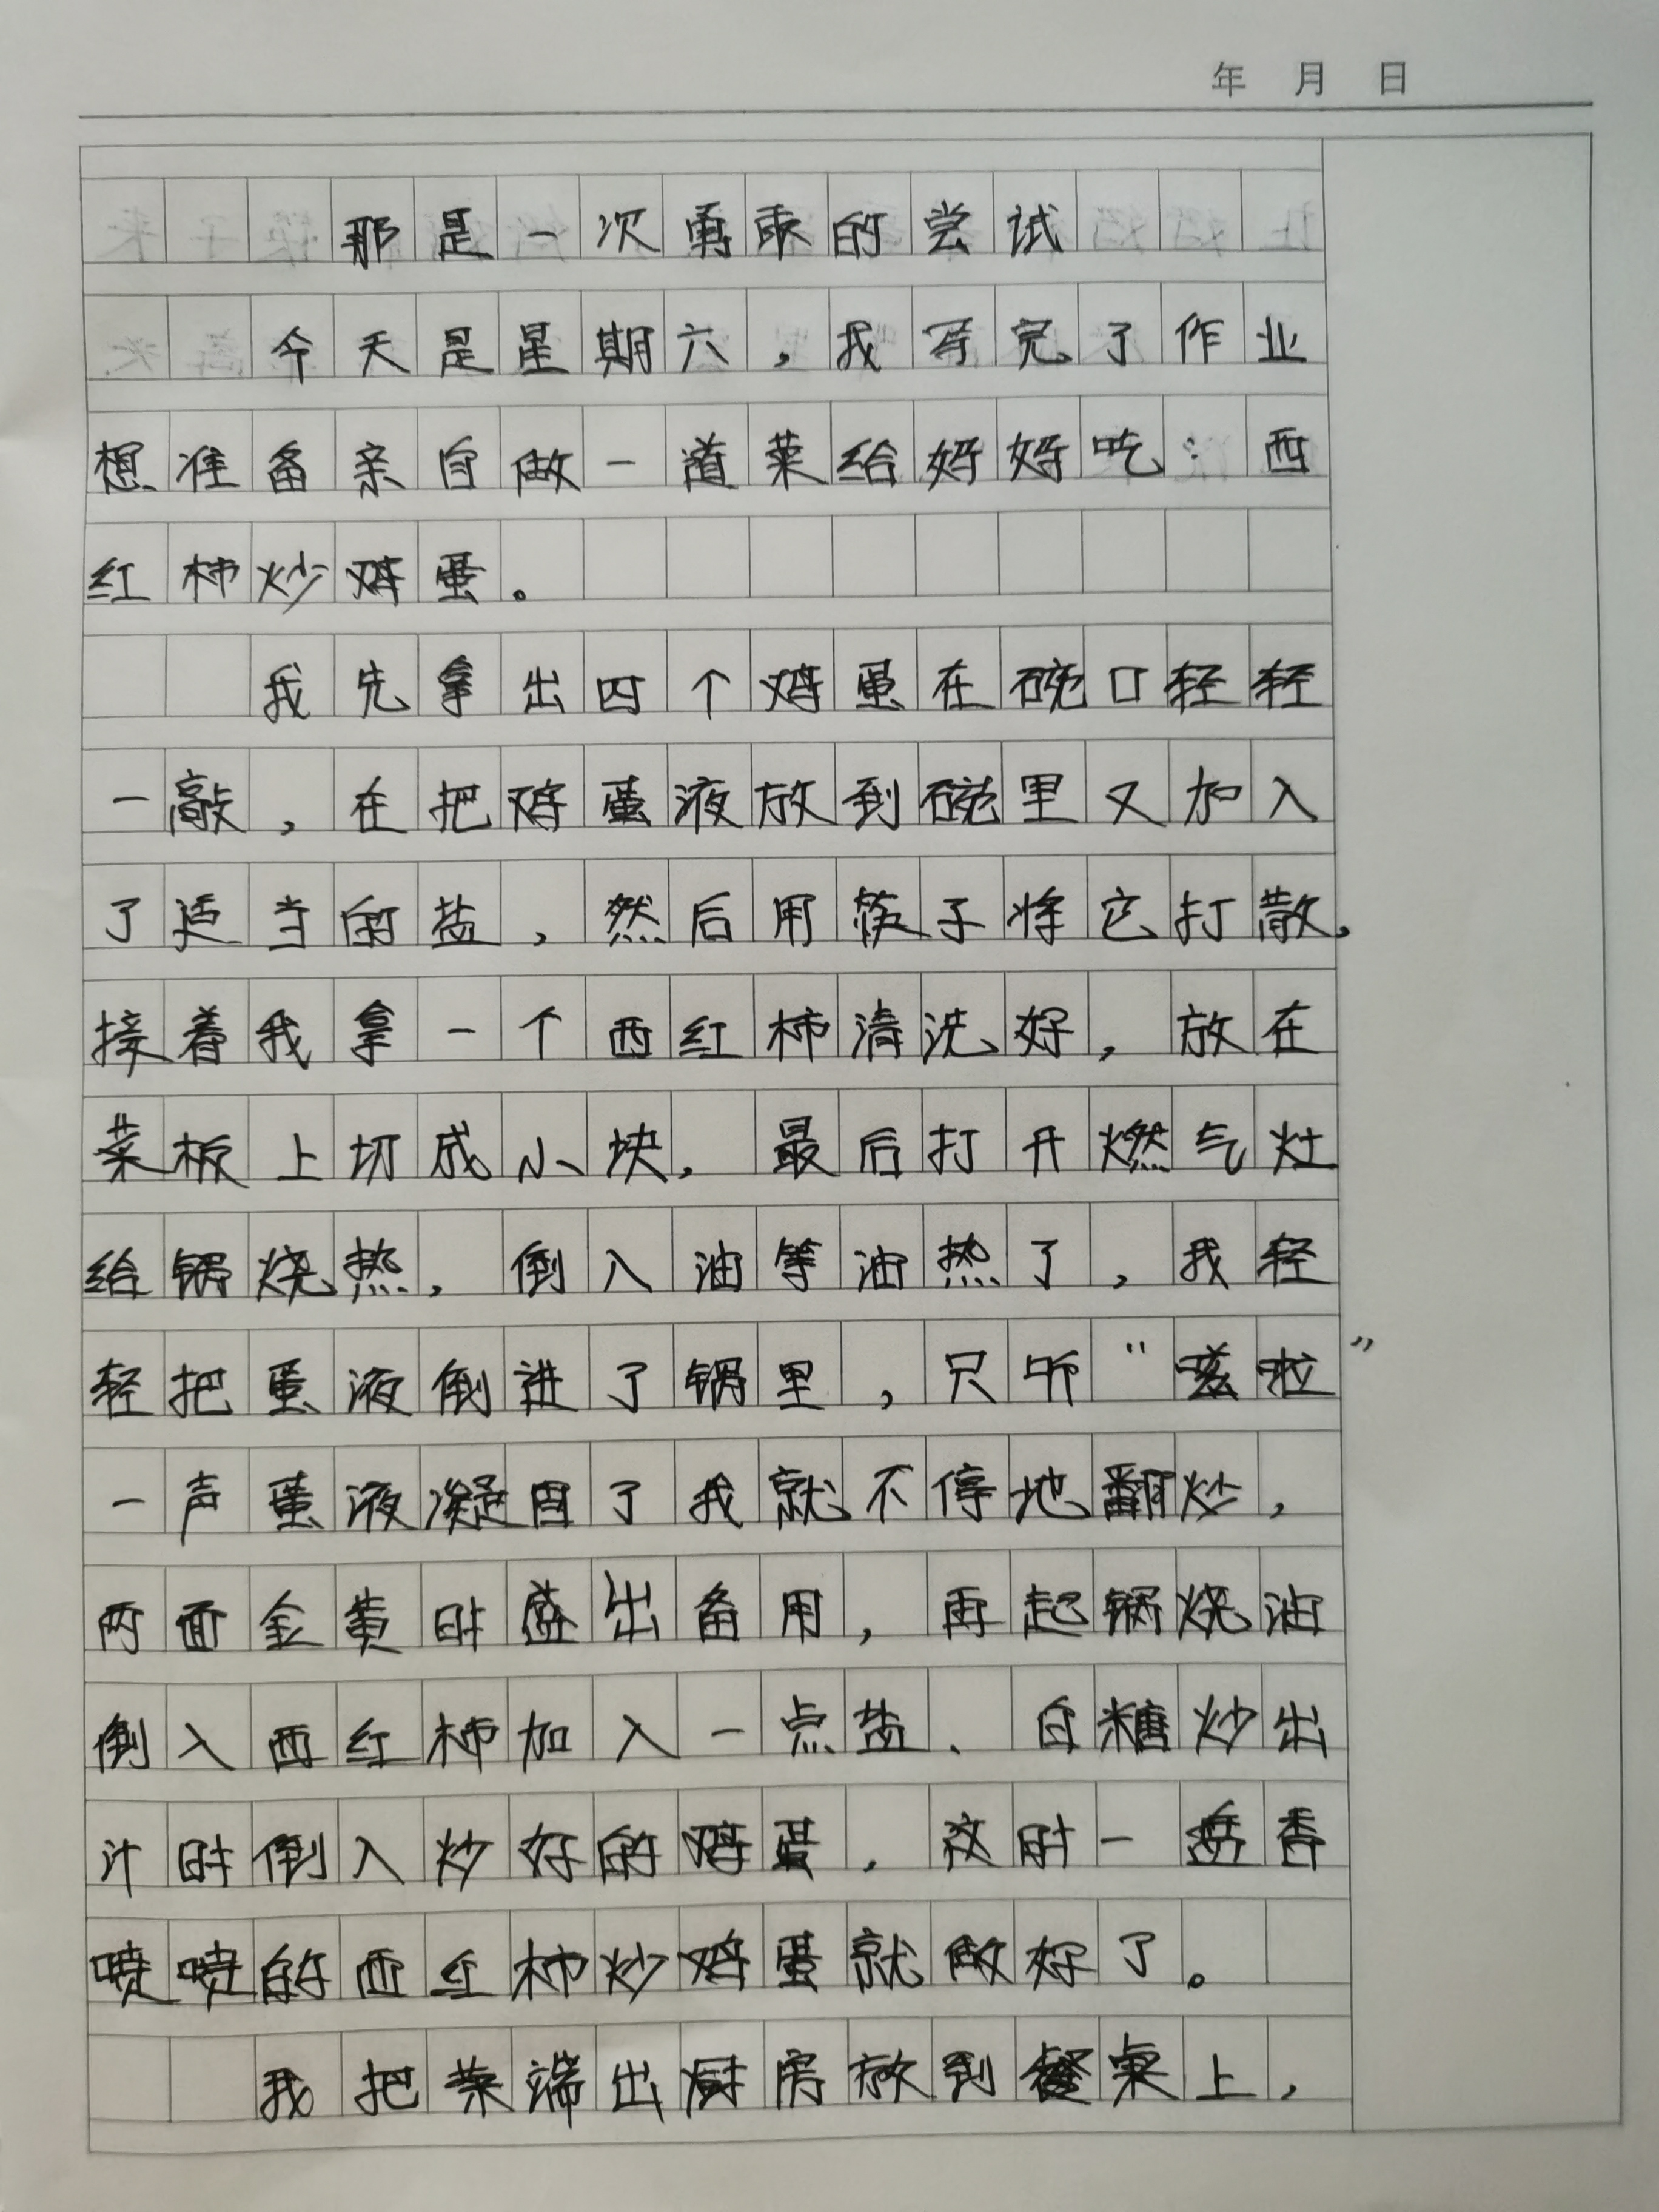 年 月 日
那是一次勇敢的尝试
今天是星期六，我写完了作业
想准备亲自做一道菜给妈妈吃：西
红柿炒鸡蛋。
我先拿出四个鸡蛋在碗口轻轻
一敲，在把鸡蛋液放到碗里又加入
了适当的盐，然后用筷子将它打散，
接着我拿一个西红柿清洗好，放在
菜板上切成小块，最后打开燃气灶
给锅烧热，倒入油等油热了，我轻
轻把蛋液倒进了锅里，只听“嗞啦”
一声蛋液凝固了我就不停地翻炒，
两面金黄时盛出备用，再起锅烧油
倒入西红柿加入一点盐、白糖炒出
汁时倒入炒好的鸡蛋，这时一盘香
喷喷的西红柿炒鸡蛋就做好了。
我把菜端出厨房放到餐桌上，